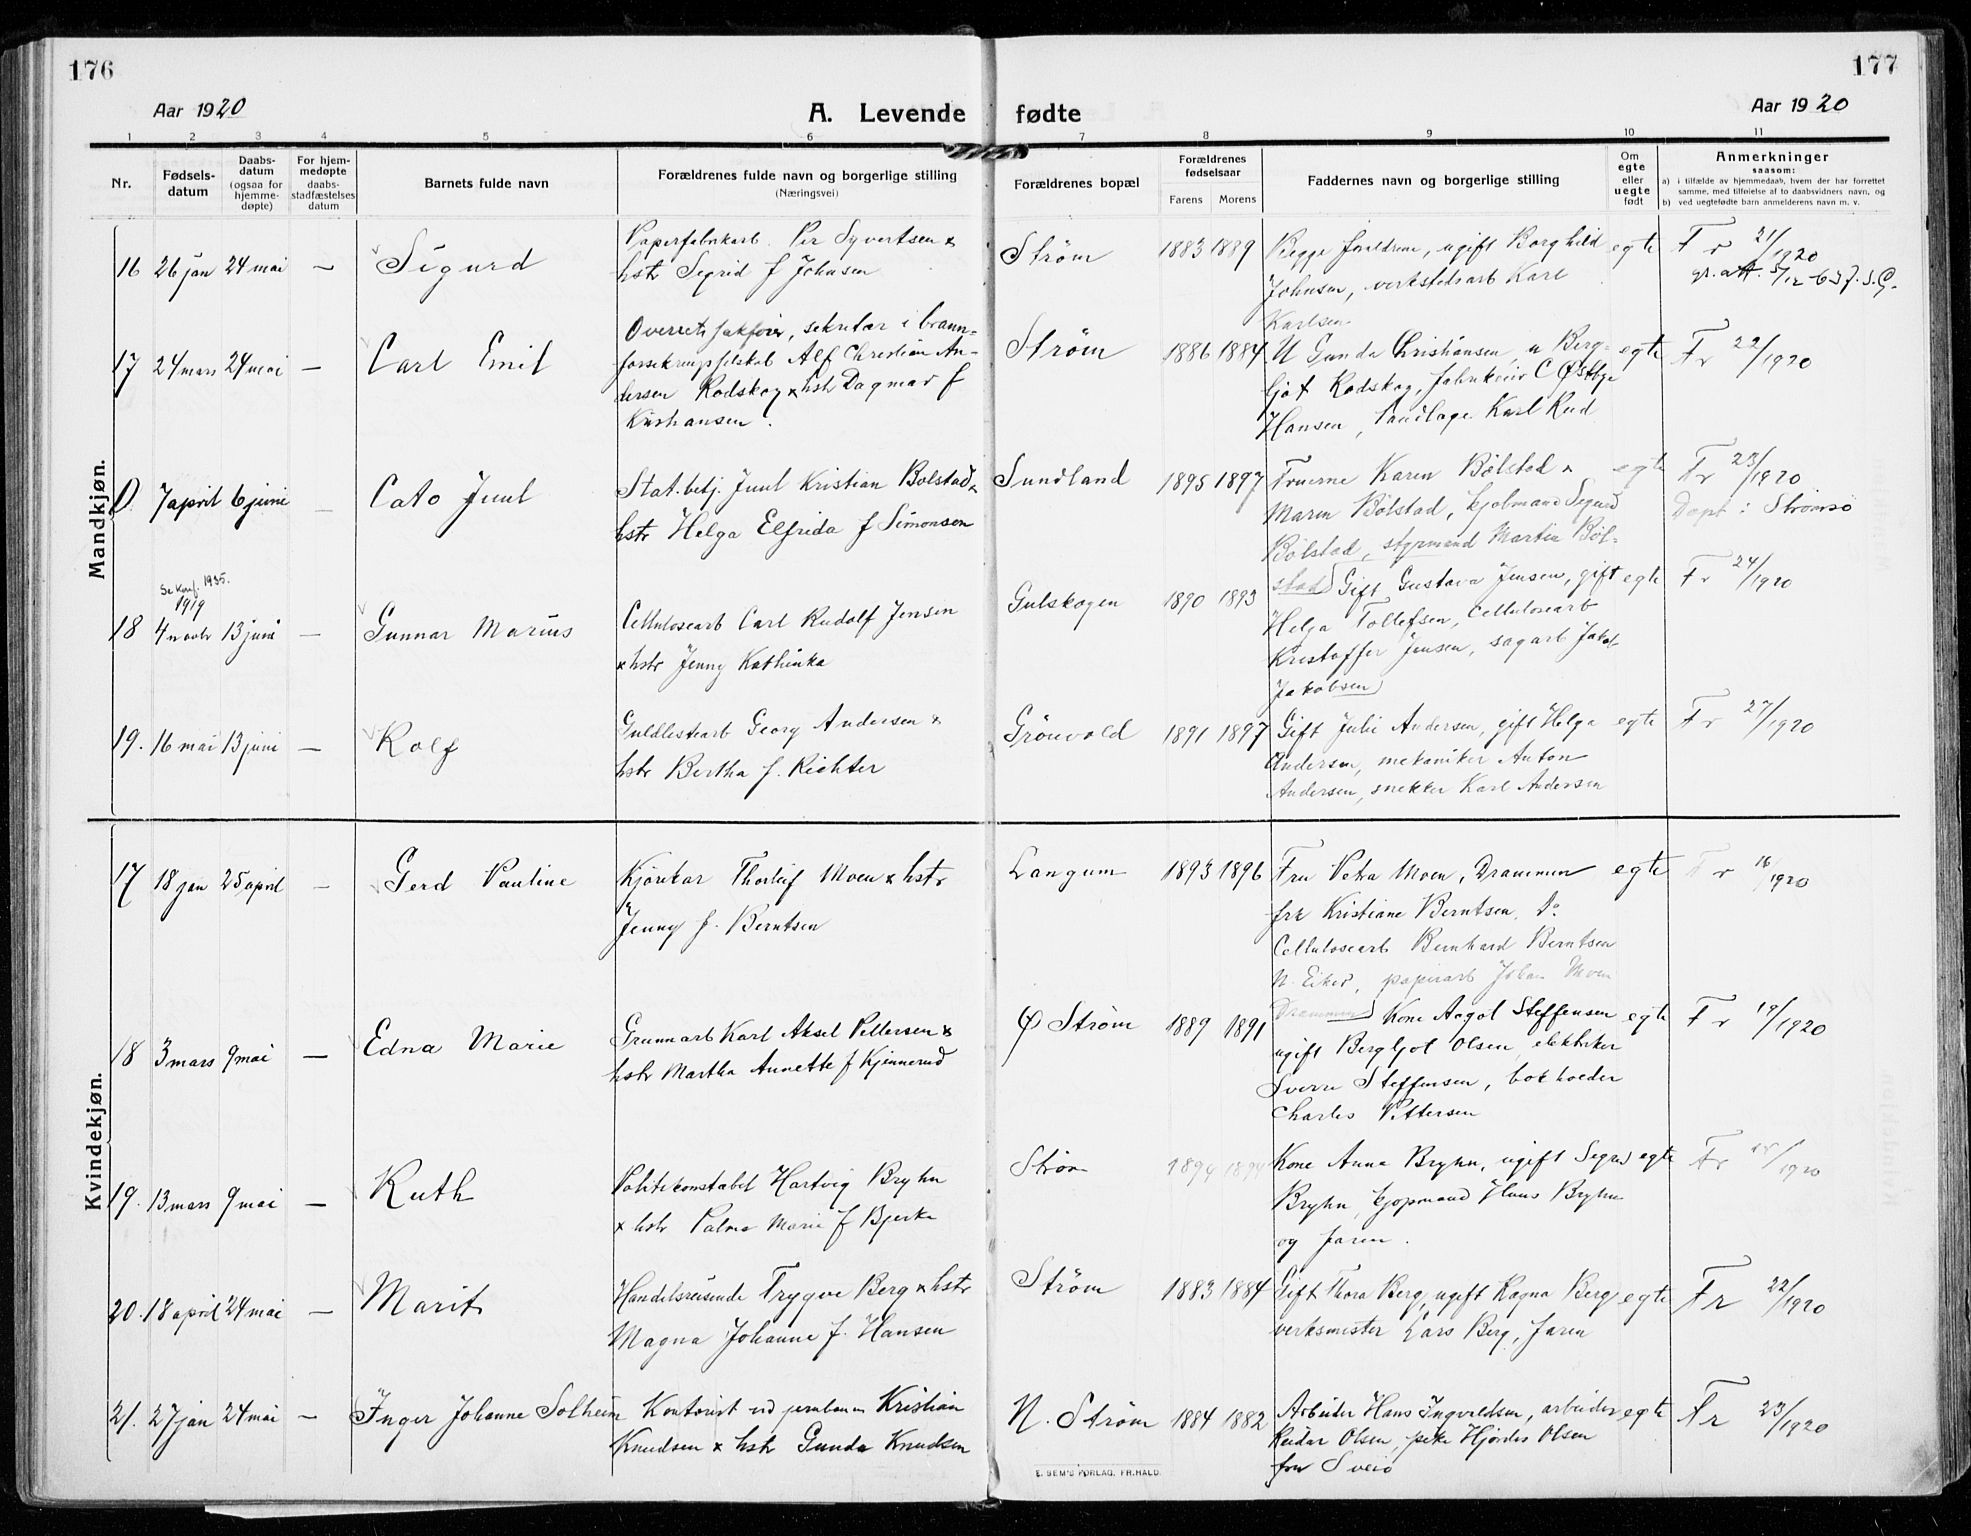 176
177
Aar 1920
A. Levende fødte
Aar 1920
1 2 3 4 5 6 7 8 9 10 11
Nr.
Fødsels-
datum
Daabs-
datum
(ogsaa for
hjemme-
døpte)
For hjem-
medøpte
daabs-
stadfæstelses
datum
Barnets fulde navn
Forældrenes fulde navn og borgerlige stilling
(Næringsvei)
Forældrenes bopæl
Forældrenes
fødselsaar
Farens Morens
Faddernes navn og borgerlige stilling
Om
egte
eller
uegte
født
Anmerkninger
saasom:
a) i tilfælde av hjemmedaab, hvem der har forrettet
samme, med tilføielse af to daabsvidners navn, og
b) ved uegtefødte barn anmelderens navn m. v.
Mandkjøn.
16 26 jan 24 mai — Sigurd
Papirfabrikarb. Per Syvertsen &
hstr Sigrid f Johnsen
Strøm 1883 1889
Begge foreldrene, ugift Borghild
Johnsen, verkstedsarb Karl
Karlsen
egte
Fr 21/1920
17 24 mars 24 mai — Carl Emil
Overretssakfører, sekretær i brann-
forsikringsselskab Alf Christian An-
dersen Rodskog & hstr Dagmar f
Kristiansen.
Strøm 1886 1884
U Gunda Christiansen, u Berg-
ljot Rodskog, fabrikeier C Østbye
Hansen, Karl Rud
egte
Fr 22/1920
0 7 april 6 juni — Cato Juul
Stat.betj. Juul Kristian Bolstad &
hstr Helga Elfrida f Simonsen
Sundland 1895 1897
Fruerne Karen Bølstad &
Maren Bølstad, kjøbmand Sigurd
Bølstad, styrmand Martin Bøl-
stad
egte
Fr 23/1920
Døpt i Strømsø
Se konf. 1935.
1919
18 4 novbr 13 juni — Gunnar Marius
Cellulosearb Carl Rudolf Jensen
& hstr Jenny Kathinka
Gulskogen 1890 1893
Gift Gustava Jensen, gift
Helga Tollefsen, cellulosearb
Kristoffer Jensen, sagarb Jakob
Jakobsen
egte
Fr 24/1920
19. 16 mai 13 juni — Rolf
Guldlistearb Georg Andersen &
hstr Bertha f. Richter
Grönvold 1891 1897
Gift Julie Andersen, gift Helga
Andersen, mekaniker Anton
Andersen, snekker Karl Andersen
egte
Fr 27/1920
Kvindekjøn.
17 18 jan 25 april — Gerd Pauline
Kjørekar Thorleif Moen & hstr
Jenny f. Berntsen
Langum 1893 1896
Fru Petra Moen, Drammen
frk Kristiane Berntsen, Do
Cellulosearb Bernhard Berntsen
N. Eiker, papirarb Johan Moen
Drammen
egte
Fr 16/1920
18 3 mars 9 mai — Edna Marie
Grunnarb Karl Aksel Pettersen &
hstr Martha Annette f Kjennerud
Ø Strøm 1889 1891
Kone Aagot Steffensen
ugift Bergljot Olsen, elektriker
Sverre Steffensen, bokholder
Charles Pettersen
egte
Fr 19/1920
19. 13 mars 9 mai — Ruth
Politikonstabel Hartvig Bryhn
& hstr Palma Marie f Bjerke
Strøm 1894 1894
Kone Anna Bryhn, ugift Sigrid
Bryhn, kjøpmand Hans Bryhn
og faren.
egte
Fr
20. 18 april 24 mai — Marit
Handelsreisende Trygve Berg & hstr
Magna Johanne f. Hansen
Strøm 1883 1884
Gift Thora Berg, ugift Ragna Berg
verksmester Lars Berg, faren
egte
Fr 22/1920
21. 27 jan 24 mai — Inger Johanne Solheim
Kontorist ved jernbanen Kristian
Knudsen & hstr Gunda Knudsen
N. Strøm 1884 1882
Arbeider Hans Ingvoldsen, arbeider
Reidar Olsen, pike Hjørdis Olsen
egte
Fr 23/1920
E. SEM'S FORLAG. FR.HALD.